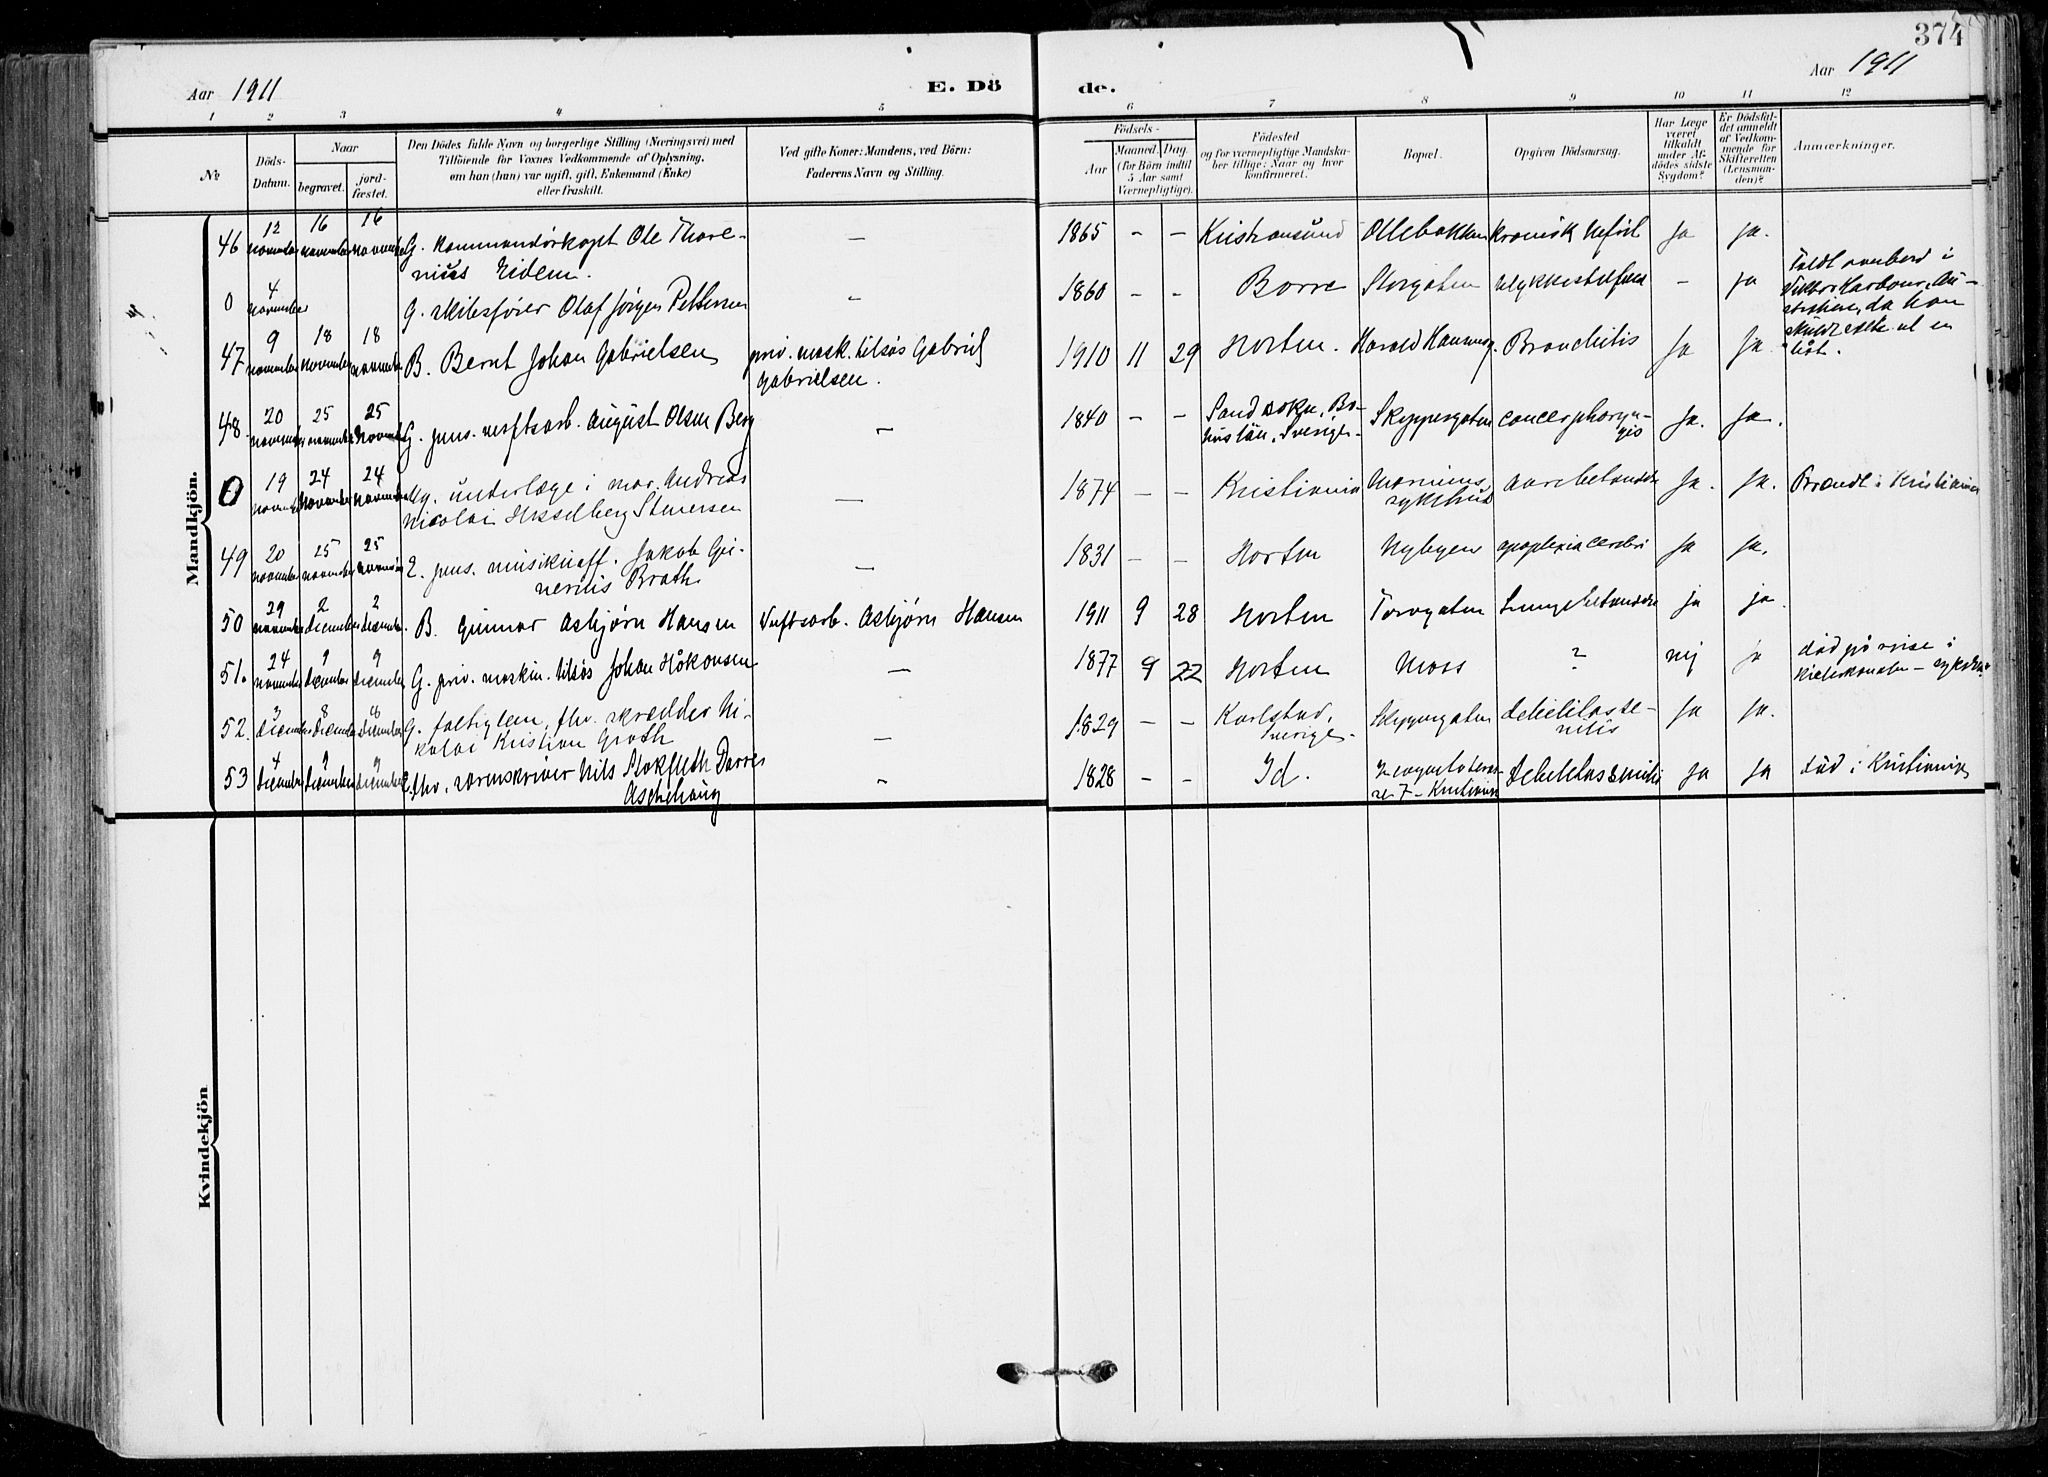 374
Aar 1911
E. Dö
de.
Aar 1911
1 2 3 4 5 6 7 8 9 10 11 12
№
Döds-
Datum.
Naar
begravet.
jord-
fæstet.
Den Dödes fulde Navn og borgerlige Stilling (Næringsvei) med
Tilföiende for Voxnes Vedkommende af Oplysning,
om han (hun) var ugift, gift, Enkemand (Enke)
eller fraskilt.
Ved gifte Koner: Mandens, ved Börn:
Faderens Navn og Stilling.
Födsels-
Aar
Maaned. Dag.
(for Börn indtil
5 Aar samt
Værnepligtige).
Födested
og for værnepligtige Mandska-
ber tillige: Naar og hvor
konfirmeret.
Bopæl.
Opgiven Dödsaarsag.
Har Læge
været
tilkaldt
under Af-
dödes sidste
Sygdom?
Er Dödsfal-
det anmeldt
af Vedkom-
mende for
Skifteretten
(Lensman-
den)?
Anmærkninger.
Mandkjön.
46 12 november 16 november 16 november G. kommandörkapt Ole Thore- — 1865 - - Kristiansund Ollebakken kronisk nefrit Ja Ja.
nius Eidem.
0 4 november G. skibsfører Olaf Jørgen Pettersen - 1860 - - Borre Storgaten ulykkestilfælde - ja Faldt overbord i
da han
skulde
båt.
47 9 november 18 november 18 november B. Bernt Johan Gabrielsen priv. mask. tilsös Gabriel 1910 11 29 Horten. Harald Haarvg. Bronchitis Ja Ja
Gabrielsen.
48 20 november 25 november 25 november G. pens. verftsarb. August Olsen Berg - 1840 - - Sand sokn, Bo- Skippergaten cancer pharyn- Ja. Ja.
huslän, Sverige. gis
0 19 november 24 november 24 november Ug. underlæge i mar. Andreas — 1874 - - Kristiania Marinens Ja. Ja. Brændt i Kristiania
Nicolai Hesselberg Stenersen sykehus
49 20 november 25 november 25 november E. pens. musikuoff. Jakob Gu- — 1831 - - Horten Nybyen apoplexia cerebri Ja Ja.
nerius Brath
50 29 november 2 december 2 december B. Gunnar Asbjørn Hansen Verftsarb. Asbjørn Hansen 1911 9 28 Horten Torvgaten Lungebetændelse ja ja.
51. 24 november 9 december 9 december G. priv. maskin. tilsös Johan Håkonsen — 1877 9 22 Horten Moss ? nej ja død på reise i
Kielerkanalen -
52. 3 december 8 december 8 december G. fattiglem, fhv. skredder Ni- — 1829 - - Karlstad, Skippergaten debilitas se- Ja Ja.
kolai Kristian Groth Sverige. nilis
53 4 december 9 december 9 december E. fhv. sorenskriver Nils Stokfleth Darre - 1828 - - Id. Ja Ja död i Kristiania
Aschehoug 7 - Kristiania
Kvindekjön